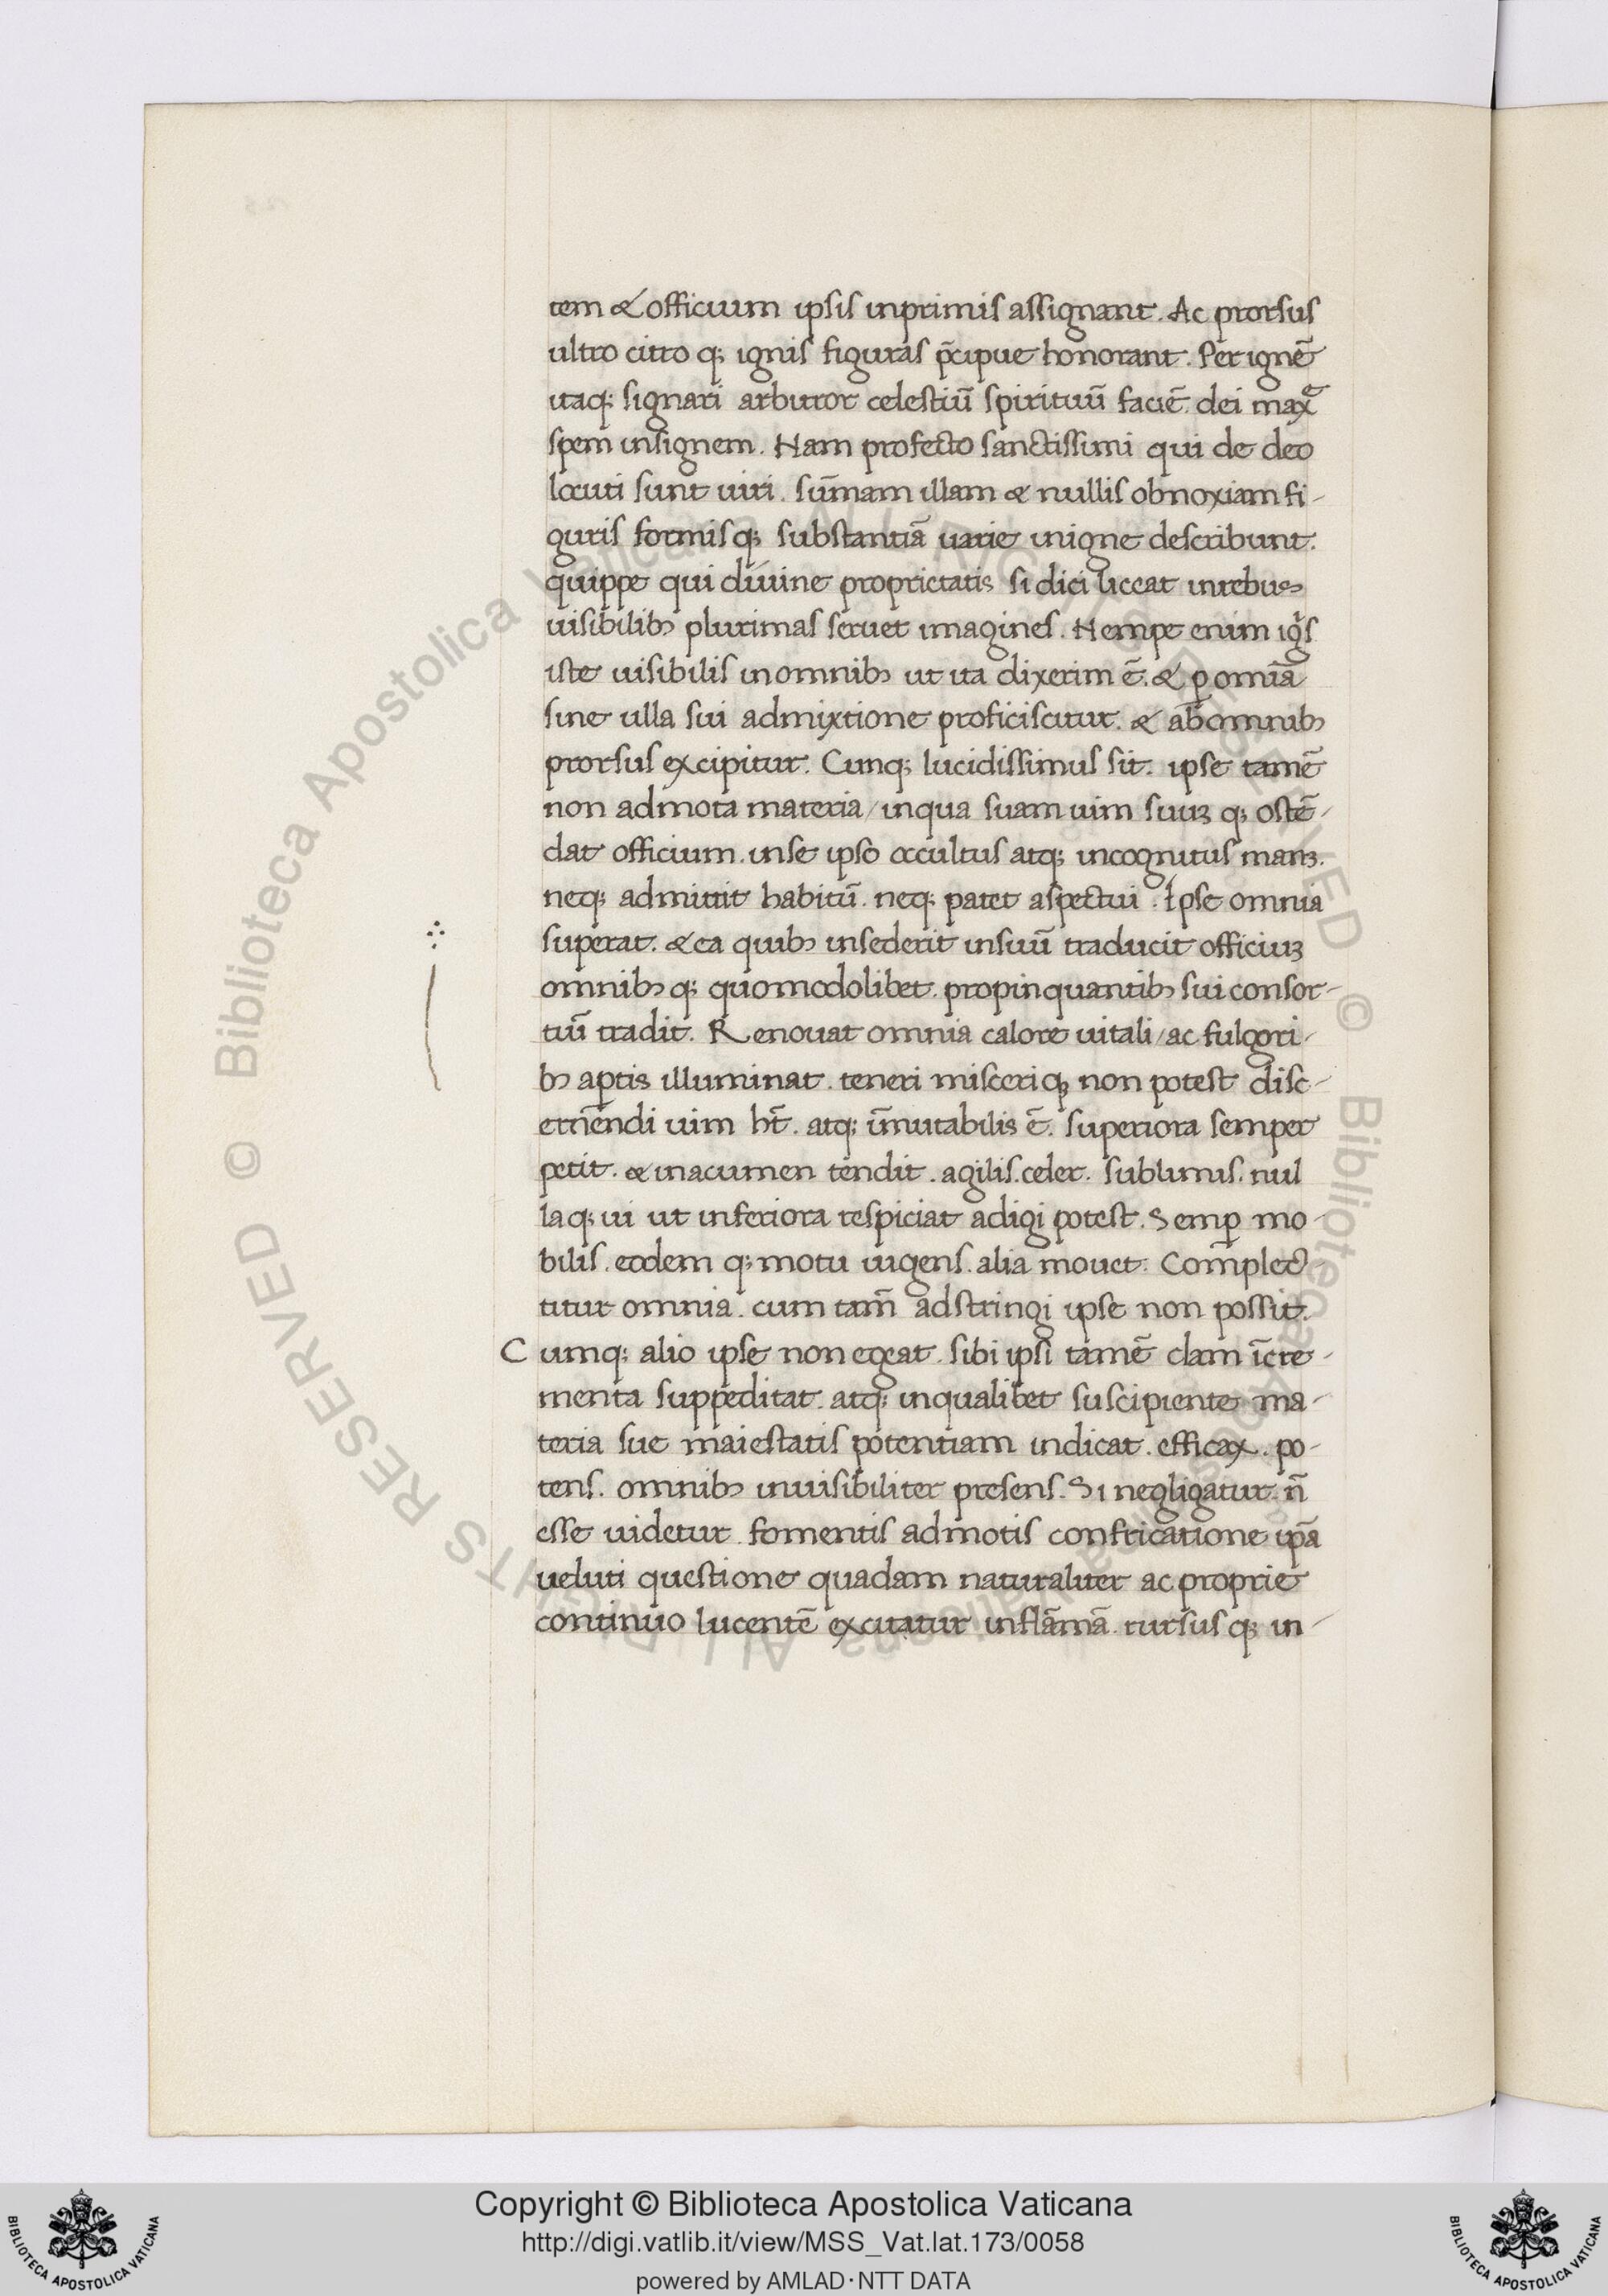 tem & officium ipsis inprimis assignant. Ac prorsus
ultro citro q; ignis figuras p̄cipue honorant. Per ignē
itaq; signari arbitror celestiū spirituū faciē. dei maxᵉ
spem insignem. Nam profecto sanctissimi qui de deo
locuti sunt uiri. sūmam illam & nullis obnoxiam fi-
guris formisq; substantiā uarie inigne describunt.
quippe qui diuine proprietatis si dici liceat inrebus
uisibilibꝫ plurimas seruet imagines. Nempe enim igⁱs
iste uisibilis inomnibꝫ ut ita dixerim ē. & ꝑ omīa
sine ulla sui admixtione proficiscitur. & abomnibꝫ
prorsus excipitur. Cunq; lucidissimus sit. ipse tamē
non admota materia / inqua suam uim suuꝫ q; ostē-
dat officium. inse ipso occultus atq; incognitus manꝫ.
neq; admittit habitū. neq; patet aspectui. Ipse omnia
superat. & ea quibꝫ insederit insuū traducit officiuꝫ
omnibꝫ q; quomodolibet. propinquantibꝫ sui consor-
tiū tradit. Renouat omnia calore uitali / ac fulgori-
bꝫ aptis illuminat. teneri misceriq; non potest disc-
ernēndi uim ht̄. atq; īmutabilis ē. superiora semper
petit. & inacumen tendit. agilis. celer. sublimis. nul
laq; ui ut inferiora respiciat adigi potest. Semꝑ mo-
bilis. eodem q; motu uigens. alia mouet. Complec-
titur omnia. cum tam̄ adstringi ipse non possit.
Cumq; alio ipse non egeat. sibi ipsi tamē clam īcre-
menta suppeditat. atq; inqualibet suscipiente ma-
teria sue maiestatis potentiam indicat. efficax. po-
tens. omnibꝫ inuisibiliter presens. Si negligatur. n̄
esse uidetur. fomentis admotis confricatione ip̄a
ueluti questione quadam naturaliter ac proprie
continuo lucentē excitatur inflāmā. rursus q; in-
© Biblioteca Apostolica Vaticana ALL RIGHTS RESERVED © Biblioteca Apostolica Vaticana ALL RIGHTS RESERVED
Copyright © Biblioteca Apostolica Vaticana
http://digi.vatlib.it/view/MSS_Vat.lat.173/0058
powered by AMLAD·NTT DATA
BIBLIOTECA APOSTOLICA VATICANA
BIBLIOTECA APOSTOLICA VATICANA